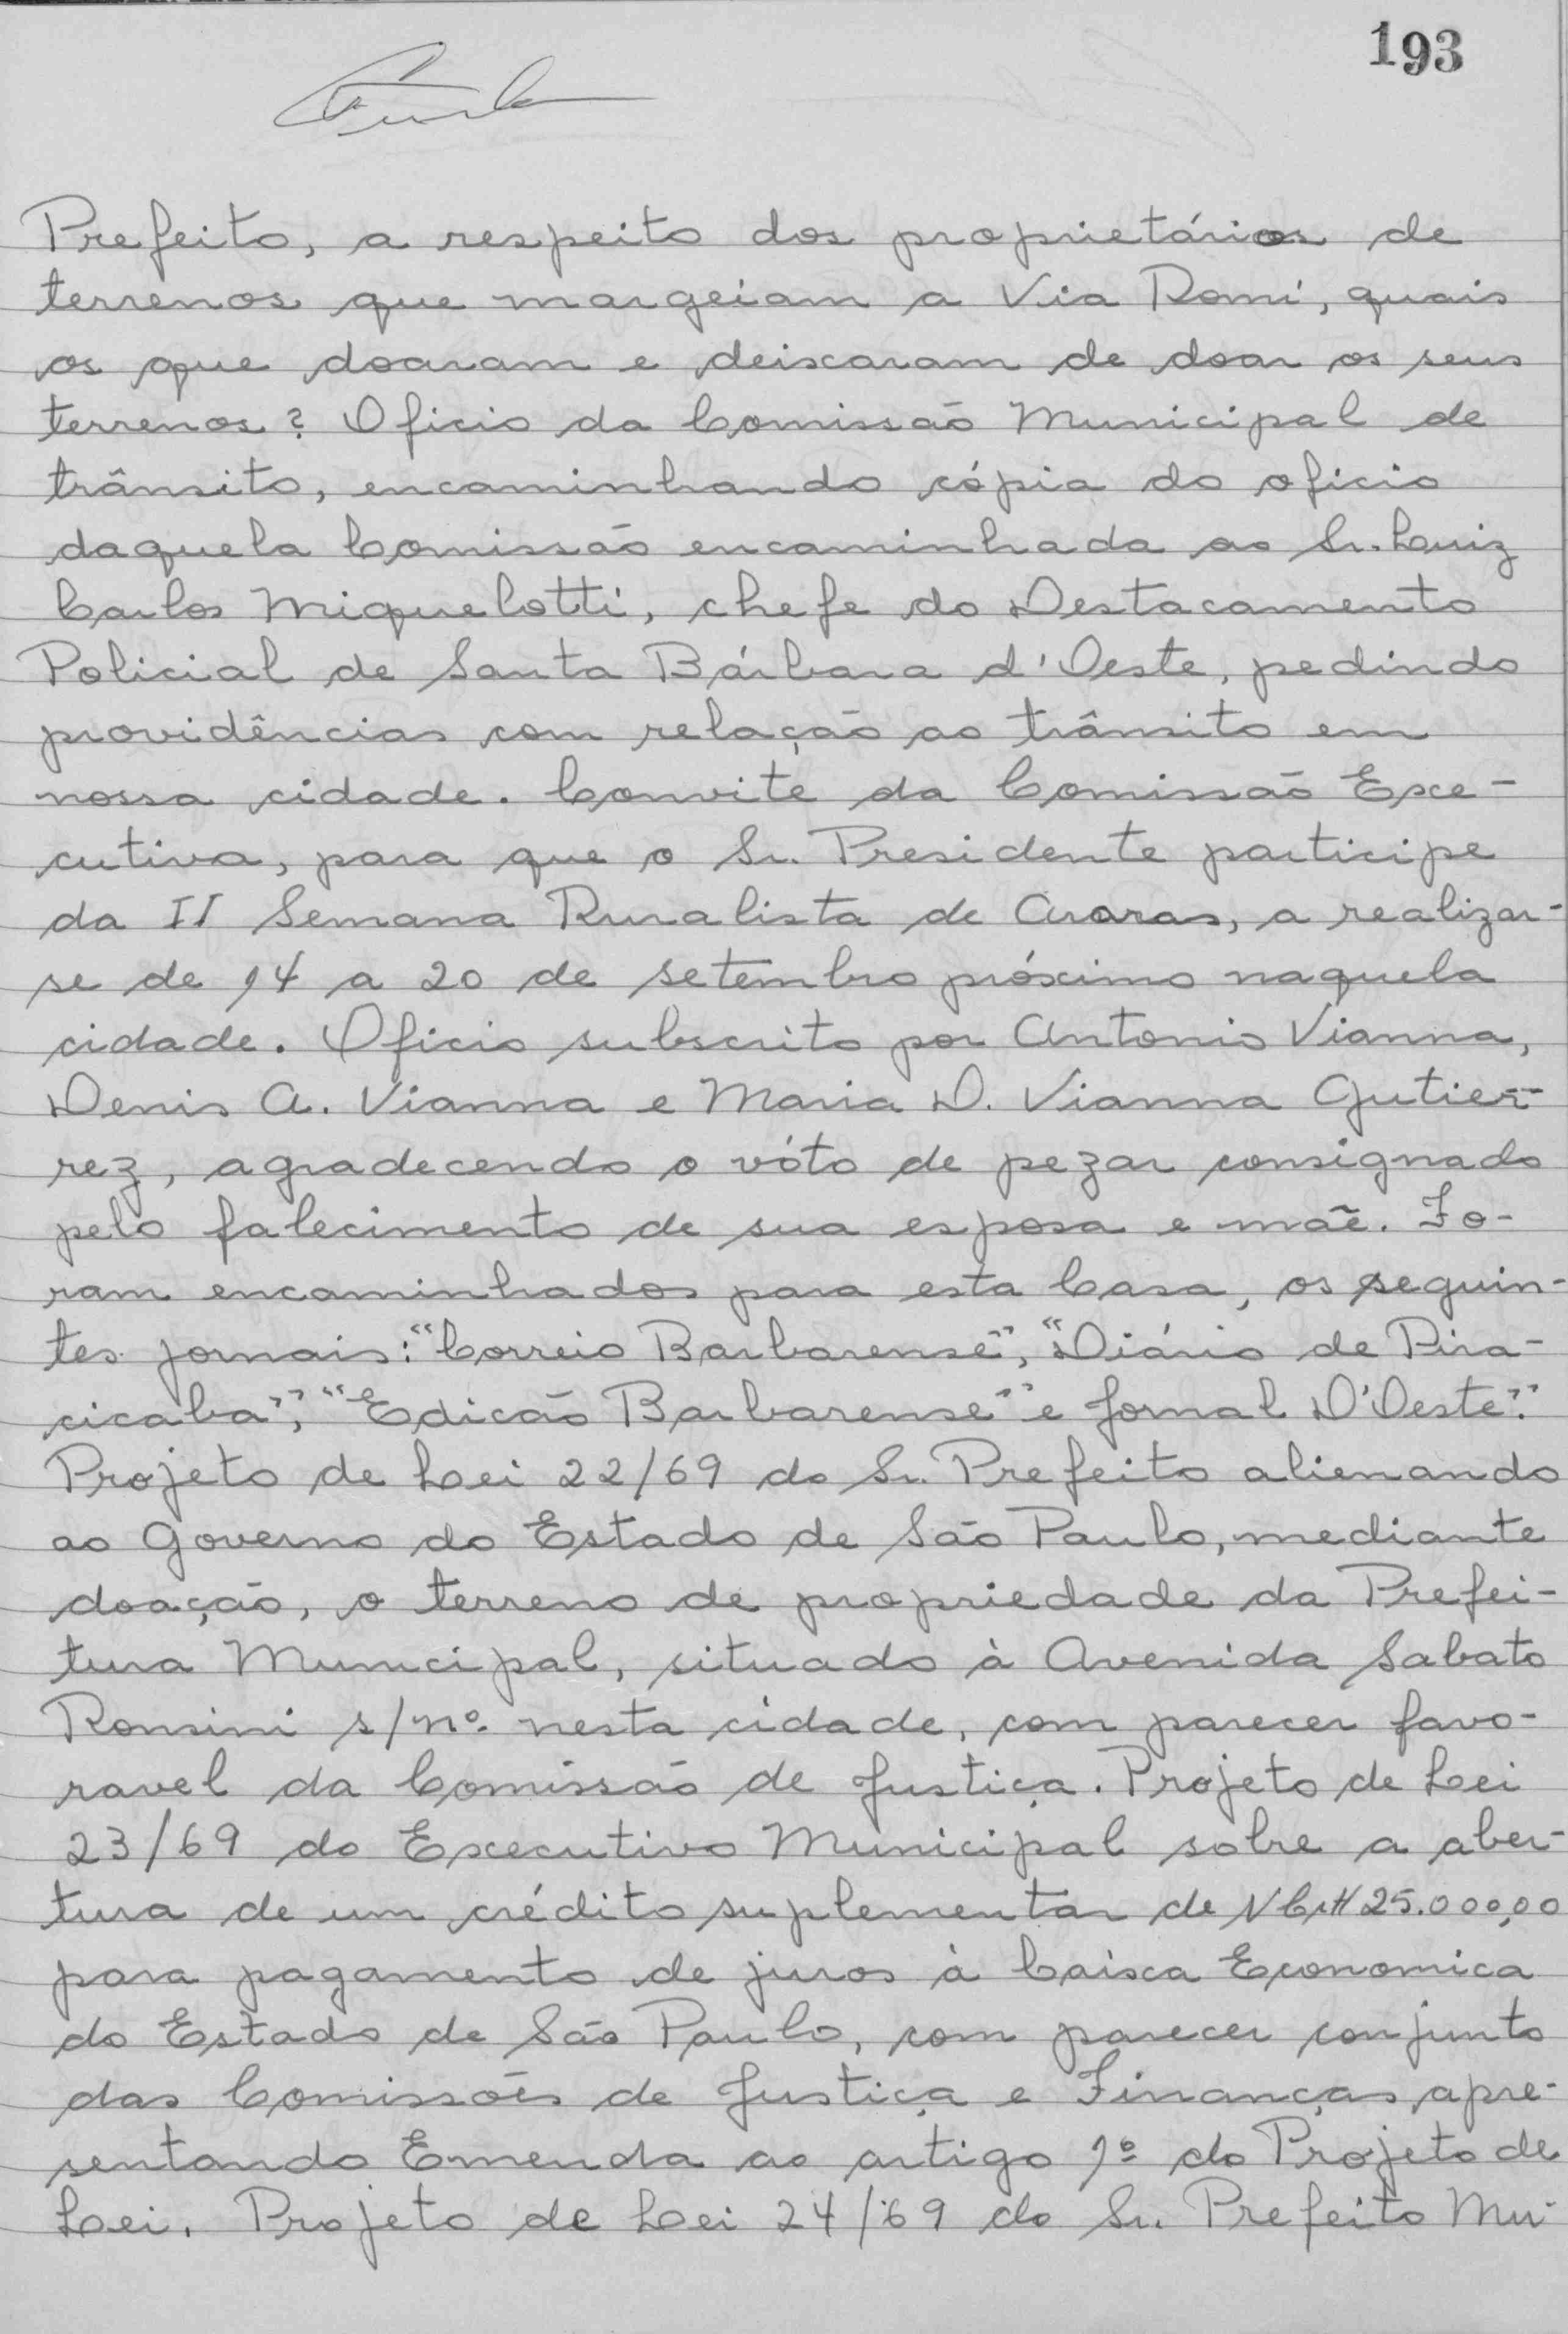 193
Prefeito, a respeito dos proprietários de
terrenos que margeiam a Via Romi, quais
os que doaram e deixaram de doar os seus
terrenos? Oficio da Comissão Municipal de
trânsito, encaminhando cópia do oficio
daquela Comissão encaminhada ao Sr. Luiz
Carlos Miquelotti, chefe do Destacamento
Policial de Santa Bárbara d'Oeste, pedindo
providências com relação ao trânsito em
nossa cidade. Convite da Comissão Exe-
cutiva, para que o Sr. Presidente participe
da II Semana Ruralista de Araras, a realizar-
se de 14 a 20 de setembro próximo naquela
cidade. Oficio subscrito por Antonio Vianna,
Denis A. Vianna e Maria D. Vianna Gutier-
rez, agradecendo o vóto de pezar consignado
pelo falecimento de sua esposa e mãe. Fo-
ram encaminhados para esta Casa, os seguin-
tes jornais: "Correio Barbarense", "Diário de Pira-
cicaba", "Edicão Barbarense" e Jornal D'Oeste".
Projeto de Lei 22/69 do Sr. Prefeito alienando
ao Governo do Estado de São Paulo, mediante
doação, o terreno de propriedade da Prefei-
tura Municipal, situado à Avenida Sabato
Ronsini s/nº. nesta cidade, com parecer favo-
ravel da Comissão de Justiça. Projeto de Lei
23/69 do Executivo Municipal sobre a aber-
tura de um crédito suplementar de NCr$ 25.000,00
para pagamento de juros à Caixa Economica
do Estado de São Paulo, com parecer conjunto
das Comissões de Justiça e Finanças, apre-
sentando Emenda ao artigo 1º do Projeto de
Lei. Projeto de Lei 24/69 do Sr. Prefeito Mu-